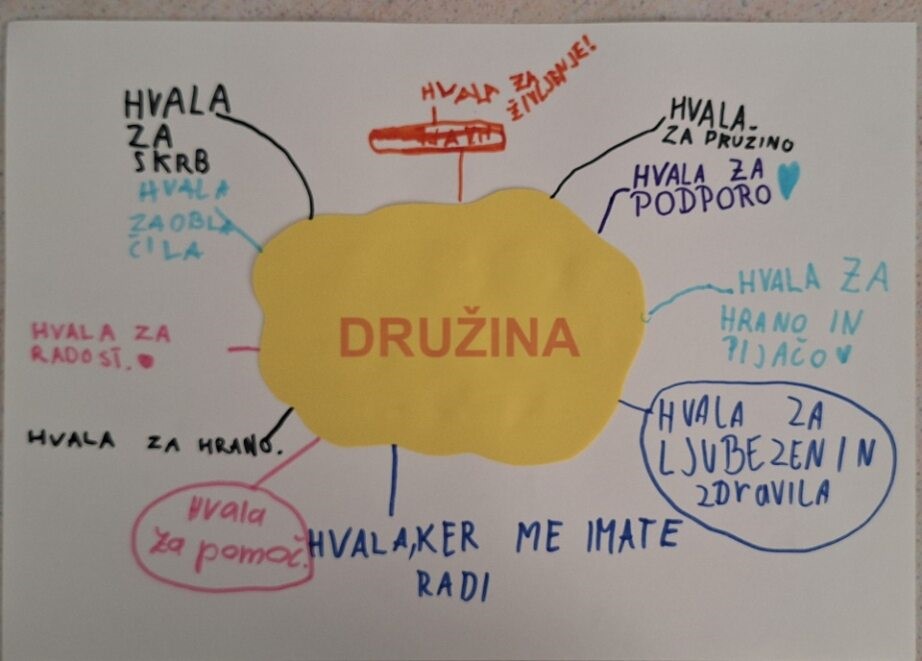 HVALA ZA
ŽIVLJENJE!
HVALA
ZA
SKRB
HVALA
ZA OBLA
ČILA
HVALA
ZA PRUŽINO
HVALA ZA
PODPORO
HVALA ZA
HRANO IN
PIJAČO
DRUŽINA
HVALA ZA
RADOST.
HVALA ZA
LJUBEZEN IN
ZDraVILA
HVALA ZA HRANO.
Hvala
za pomoč.
HVALA, KER ME IMATE
RADI